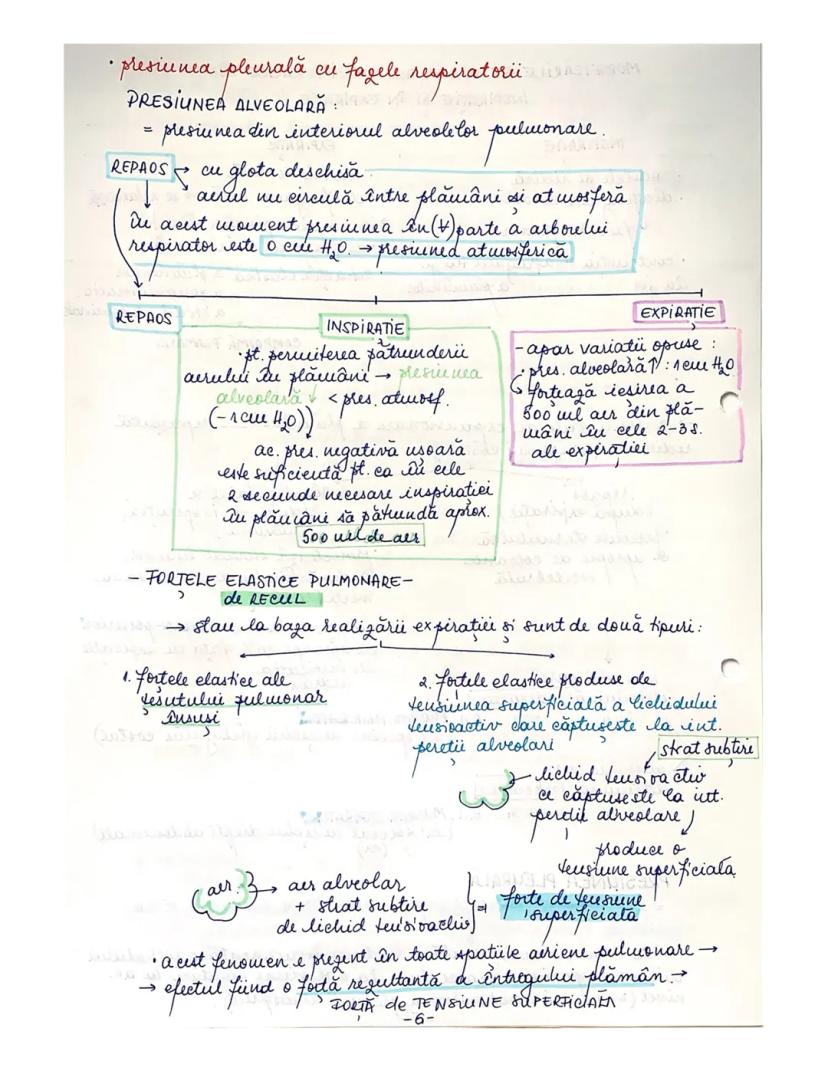 • presiunea pleurală cu fazele respiratorii
PRESIUNEA ALVEOLARĂ:
= presiunea din interiorul alveolelor pulmonare.
REPAOS → cu glota deschisă
→ aerul nu circulă între plămâni și atmosferă
În acest moment presiunea în (∀) parte a arborelui
respirator este 0 cm H₂O. → presiunea atmosferică
REPAOS
INSPIRAȚIE
• pt. permiterea pătrunderii
aerului în plămâni → presiunea
alveolară ↓ < pres. atmosf.
(-1 cm H₂O)
ac. pres. negativă ușoară
este suficientă pt. ca în cele
2 secunde necesare inspirației
în plămâni să pătrundă aprox.
500 ml de aer
EXPIRAȚIE
- apar variații opuse:
• pres. alveolară ↑: 1 cm H₂O
↳ forțează ieșirea a
500 ml aer din plă-
mâni în cele 2-3 s.
ale expirației
- FORȚELE ELASTICE PULMONARE -
de RECUL
→ stau la baza realizării expirației și sunt de două tipuri:
1. forțele elastice ale
țesutului pulmonar
însuși
2. forțele elastice produse de
tensiunea superficială a lichidului
tensioactiv care căptușește la int.
pereții alveolari
strat subțire
lichid tensioactiv
ce căptușește la int.
pereții alveolare
produce o
tensiune superficială
aer → aer alveolar
+ strat subțire
de lichid tensioactiv
= forțe de tensiune
superficială
• acest fenomen e prezent în toate spațiile aeriene pulmonare →
→ efectul fiind o forță rezultantă a întregului plămân →
FORȚĂ de TENSIUNE SUPERFICIALĂ
-6-